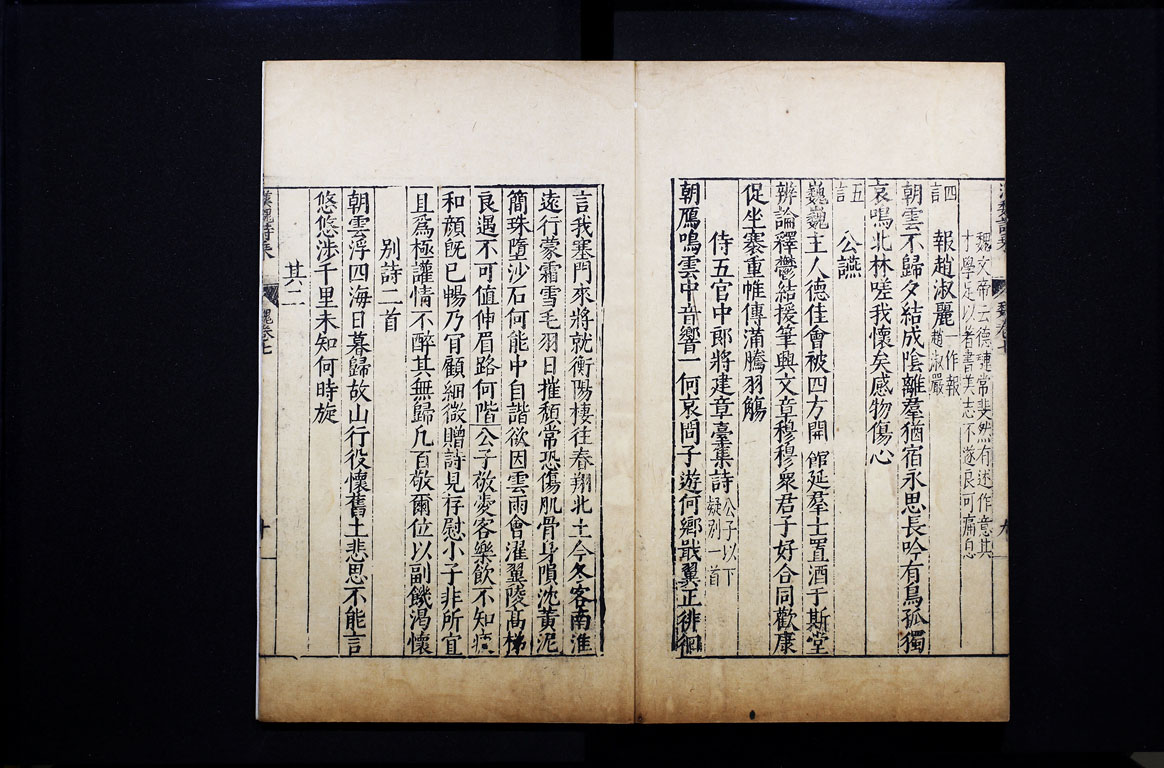 漢魏詩乘
魏卷七
九
魏文帝云德璉常斐然有述作意其
才學足以著書美志不遂良可痛惜
四言
報趙淑麗
一作報趙淑嚴
朝雲不歸夕結成陰離羣猶宿永思長吟有鳥孤獨
哀鳴北林嗟我懷矣感物傷心
五言
公讌
巍巍主人德佳會被四方開館延羣士置酒于斯堂
辨論釋鬱結援筆興文章穆穆衆君子好合同歡康
促坐褰重帷傳滿騰羽觴
侍五官中郎將建章臺集詩
公子以下疑別一首
朝鴈鳴雲中音響一何哀問子遊何鄉戢翼正徘徊
言我塞門來將就衡陽棲往春翔北土今冬客南淮
遠行蒙霜雪毛羽日摧頹常恐傷肌骨身隕沈黃泥
簡珠墮沙石何能中自諧欲因雲雨會濯翼陵高梯
良遇不可值伸眉路何階公子敬愛客樂飲不知疲
和顏旣已暢乃肎顧細微贈詩見存慰小子非所宜
且爲極讙情不醉其無歸凡百敬爾位以副饑渴懷
別詩二首
朝雲浮四海日暮歸故山行役懷舊土悲思不能言
悠悠涉千里未知何時旋
其二
漢魏詩乘
魏卷七
十